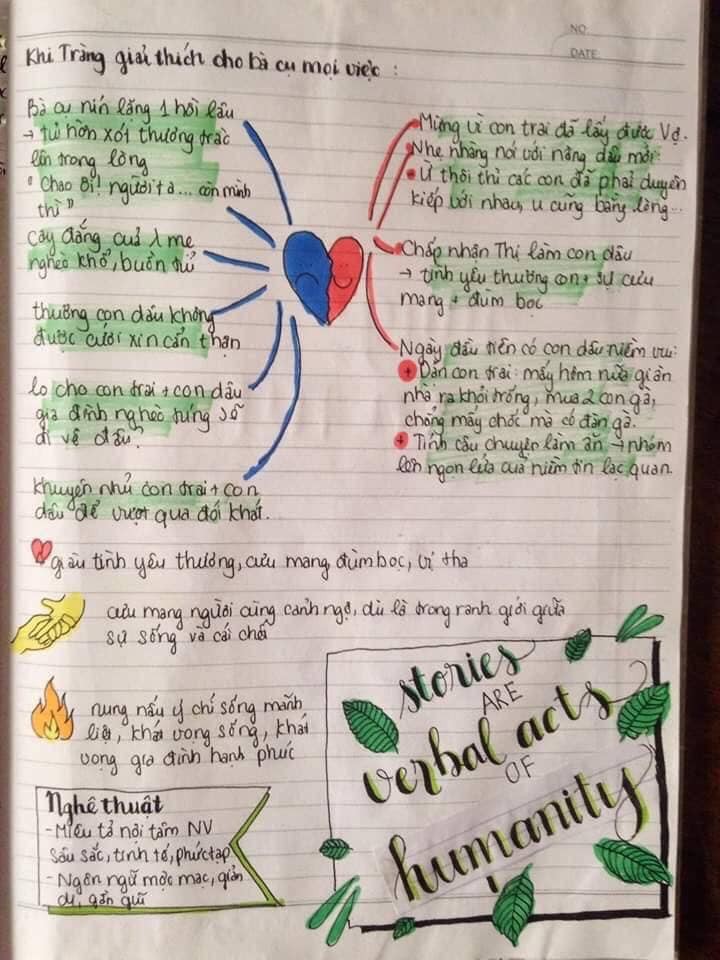 NO
DATE
Khi Tràng giải thích cho bà cụ mọi việc :
Bà cụ nín lặng 1 hồi lâu
→ tủi hờn xót thương trào
lên trong lòng
"Chao ôi! người ta ... còn mình
thì"
Cay đắng của 1 mẹ
nghèo khổ, buồn tủi
thương con dâu không
được cưới xin cẩn thận
lo cho con trai + con dâu
gia đình nghèo túng sẽ
đi về đâu?
khuyên nhủ con trai + con
dâu để vượt qua đói khát.
Mừng vì con trai đã lấy được Vợ.
Nhẹ nhàng nói với nàng dâu mới:
Ừ thôi thì các con đã phải duyên
kiếp với nhau, u cũng bằng lòng...
Chấp nhận Thị làm con dâu
→ tình yêu thương con + sự cưu
mang + đùm bọc
Ngày đầu tiên có con dâu niềm vui:
+ Dặn con trai: mấy hôm nữa giăn
nhà ra khỏi trống, mua 2 con gà,
chẳng mấy chốc mà có đàn gà.
+ Tính câu chuyện làm ăn → nhóm
lên ngọn lửa của niềm tin lạc quan.
giàu tình yêu thương, cưu mang, đùm bọc, vị tha
cưu mang người cùng cảnh ngộ, dù là trong ranh giới giữa
sự sống và cái chết
nung nấu ý chí sống mãnh
liệt, khát vọng sống, khát
vọng gia đình hạnh phúc
Nghệ thuật
- Miêu tả nội tâm NV
sâu sắc, tinh tế, phức tạp
- Ngôn ngữ mộc mạc, giản
dị, gần gũi
stories
ARE
verbal acts
OF
humanity